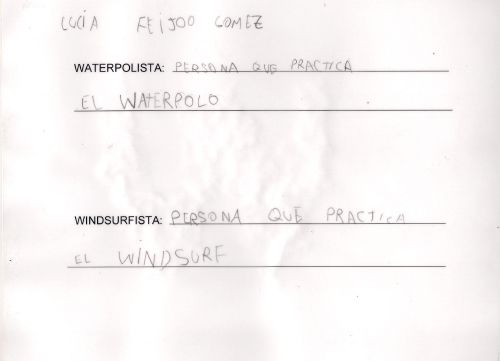 LUCÍA FEIJOO GOMEZ
WATERPOLISTA: PERSONA QUE PRACTICA
EL WATERPOLO
WINDSURFISTA: PERSONA QUE PRACTICA
EL WINDSURF